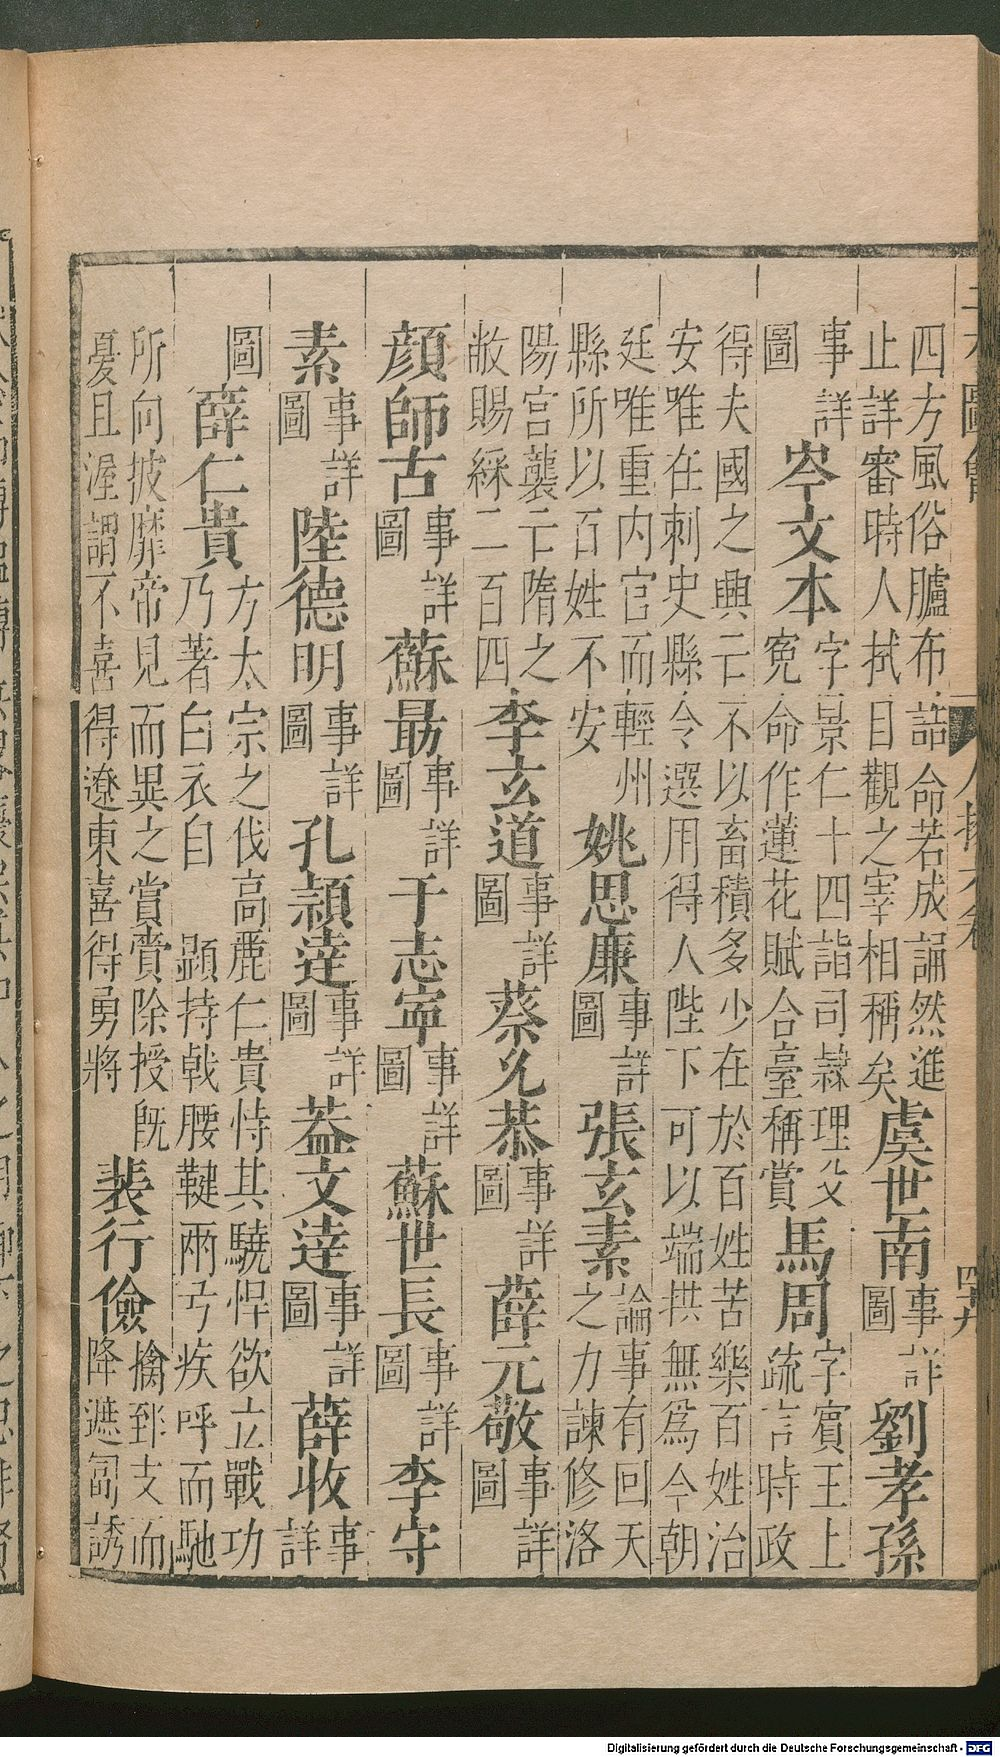 四方風俗臚布詰命若成誦然進
止詳審時人拭目觀之宰相稱矣
虞世南
事詳
圖
劉孝孫
事詳
圖
岑文本
字景仁十四詣司隸理父
冤命作蓮花賦合臺稱賞
馬周
字賓王上
疏言時政
得夫國之興亡不以畜積多少在於百姓苦樂百姓治
安唯在刺史縣令選用得人陛下可以端拱無爲今朝
廷唯重内官而輕州
縣所以百姓不安
姚思廉
事詳
圖
張玄素
論事有回天
之力諫修洛
陽宮襲亡隋之
敝賜綵二百四
李玄道
事詳
圖
蔡允恭
事詳
圖
薛元敬
事詳
圖
顏師古
事詳
圖
蘇朂
事詳
圖
于志寧
事詳
圖
蘇世長
事詳
圖
李守
素
事詳
圖
陸德明
事詳
圖
孔頴逹
事詳
圖
葢文逹
事詳
圖
薛收
事詳
圖
薛仁貴
方太宗之伐高麗仁貴恃其驍悍欲立戰功
乃著白衣自顯持戟腰鞬兩弓疾呼而馳
所向披靡帝見而異之賞賚除授旣
憂且渥謂不喜得遼東喜得勇將
裴行儉
擒郅支而
降遮匐誘
Digitalisierung gefördert durch die Deutsche Forschungsgemeinschaft - DFG